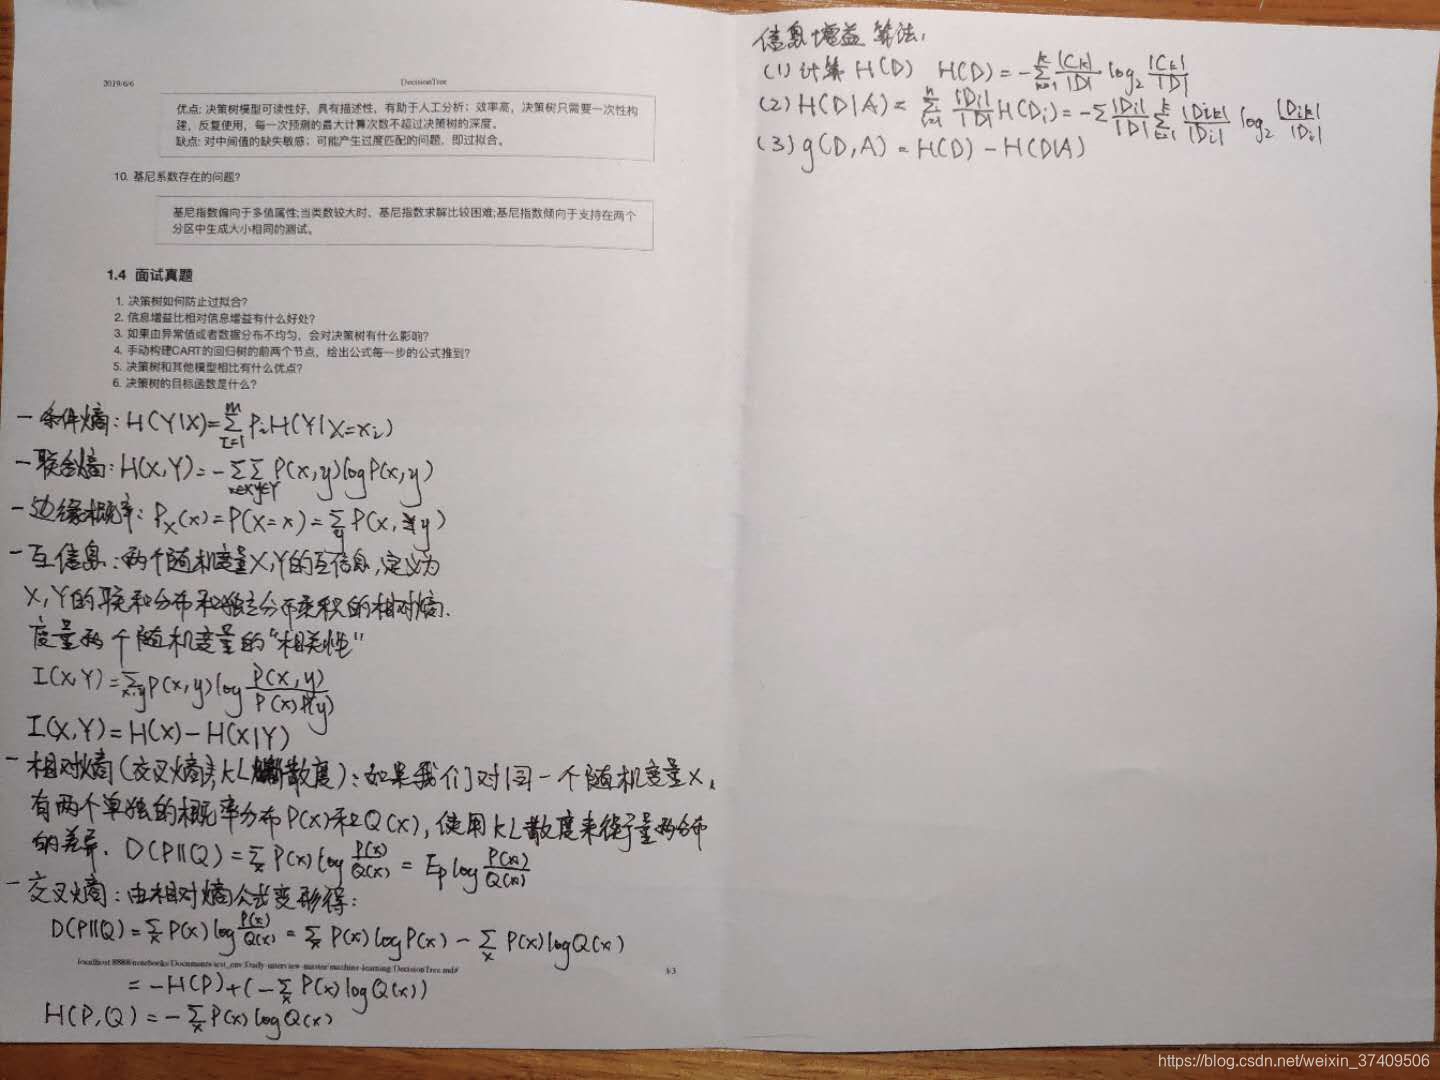 2019/6/6 DecisionTree
优点: 决策树模型可读性好，具有描述性，有助于人工分析；效率高，决策树只需要一次性构
建，反复使用，每一次预测的最大计算次数不超过决策树的深度。
缺点: 对中间值的缺失敏感；可能产生过度匹配的问题，即过拟合。
10. 基尼系数存在的问题?
基尼指数偏向于多值属性;当类数较大时，基尼指数求解比较困难;基尼指数倾向于支持在两个
分区中生成大小相同的测试。
1.4 面试真题
1. 决策树如何防止过拟合?
2. 信息增益比相对信息增益有什么好处?
3. 如果由异常值或者数据分布不均匀，会对决策树有什么影响?
4. 手动构建CART的回归树的前两个节点，给出公式每一步的公式推到?
5. 决策树和其他模型相比有什么优点?
6. 决策树的目标函数是什么?
- 条件熵: H(Y|X)=∑_{i=1}^{m} P_i H(Y|X=x_i)
- 联合熵: H(X,Y)=-∑_{x∈X}∑_{y∈Y} P(x,y)logP(x,y)
- 边缘概率: P_X(x)=P(X=x)=∑_y P(x,y)
- 互信息: 两个随机变量X,Y的互信息,定义为
X,Y的联和分布和独立分布乘积的相对熵.
度量两个随机变量的"相关性"
I(X,Y)=∑_{x,y}P(x,y)log P(x,y)/P(x)P(y)
I(X,Y)=H(X)-H(X|Y)
- 相对熵(交叉熵,KL散度): 如果我们对同一个随机变量X,
有两个单独的概率分布P(x)和Q(x),使用KL散度来衡量两分布
的差异. D(P||Q)=∑_x P(x)log P(x)/Q(x) = E_P log P(x)/Q(x)
- 交叉熵: 由相对熵公式变形得:
D(P||Q)=∑_x P(x)log P(x)/Q(x) = ∑_x P(x)logP(x) - ∑_x P(x)logQ(x)
localhost:8888/notebooks/Documents/test_env/Daily-interview-master/machine-learning/DecisionTree.md# 3/3
= -H(P)+(-∑_x P(x)logQ(x))
H(P,Q)=-∑_x P(x)logQ(x)
信息增益算法:
(1) 计算H(D) H(D)=-∑_{k=1}^{k} |C_k|/|D| log_2 |C_k|/|D|
(2) H(D|A)=∑_{i=1}^{n} |D_i|/|D| H(D_i)=-∑|D_i|/|D| ∑_{k=1}^{k} |D_ik|/|D_i| log_2 |D_ik|/|D_i|
(3) g(D,A)=H(D)-H(D|A)
https://blog.csdn.net/weixin_37409506